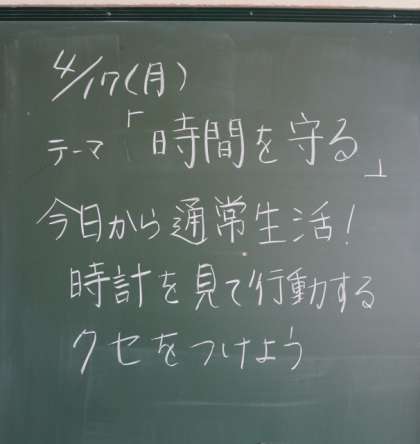 4/17(月)
テーマ「時間を守る」
今日から通常生活!
時計を見て行動する
クセをつけよう